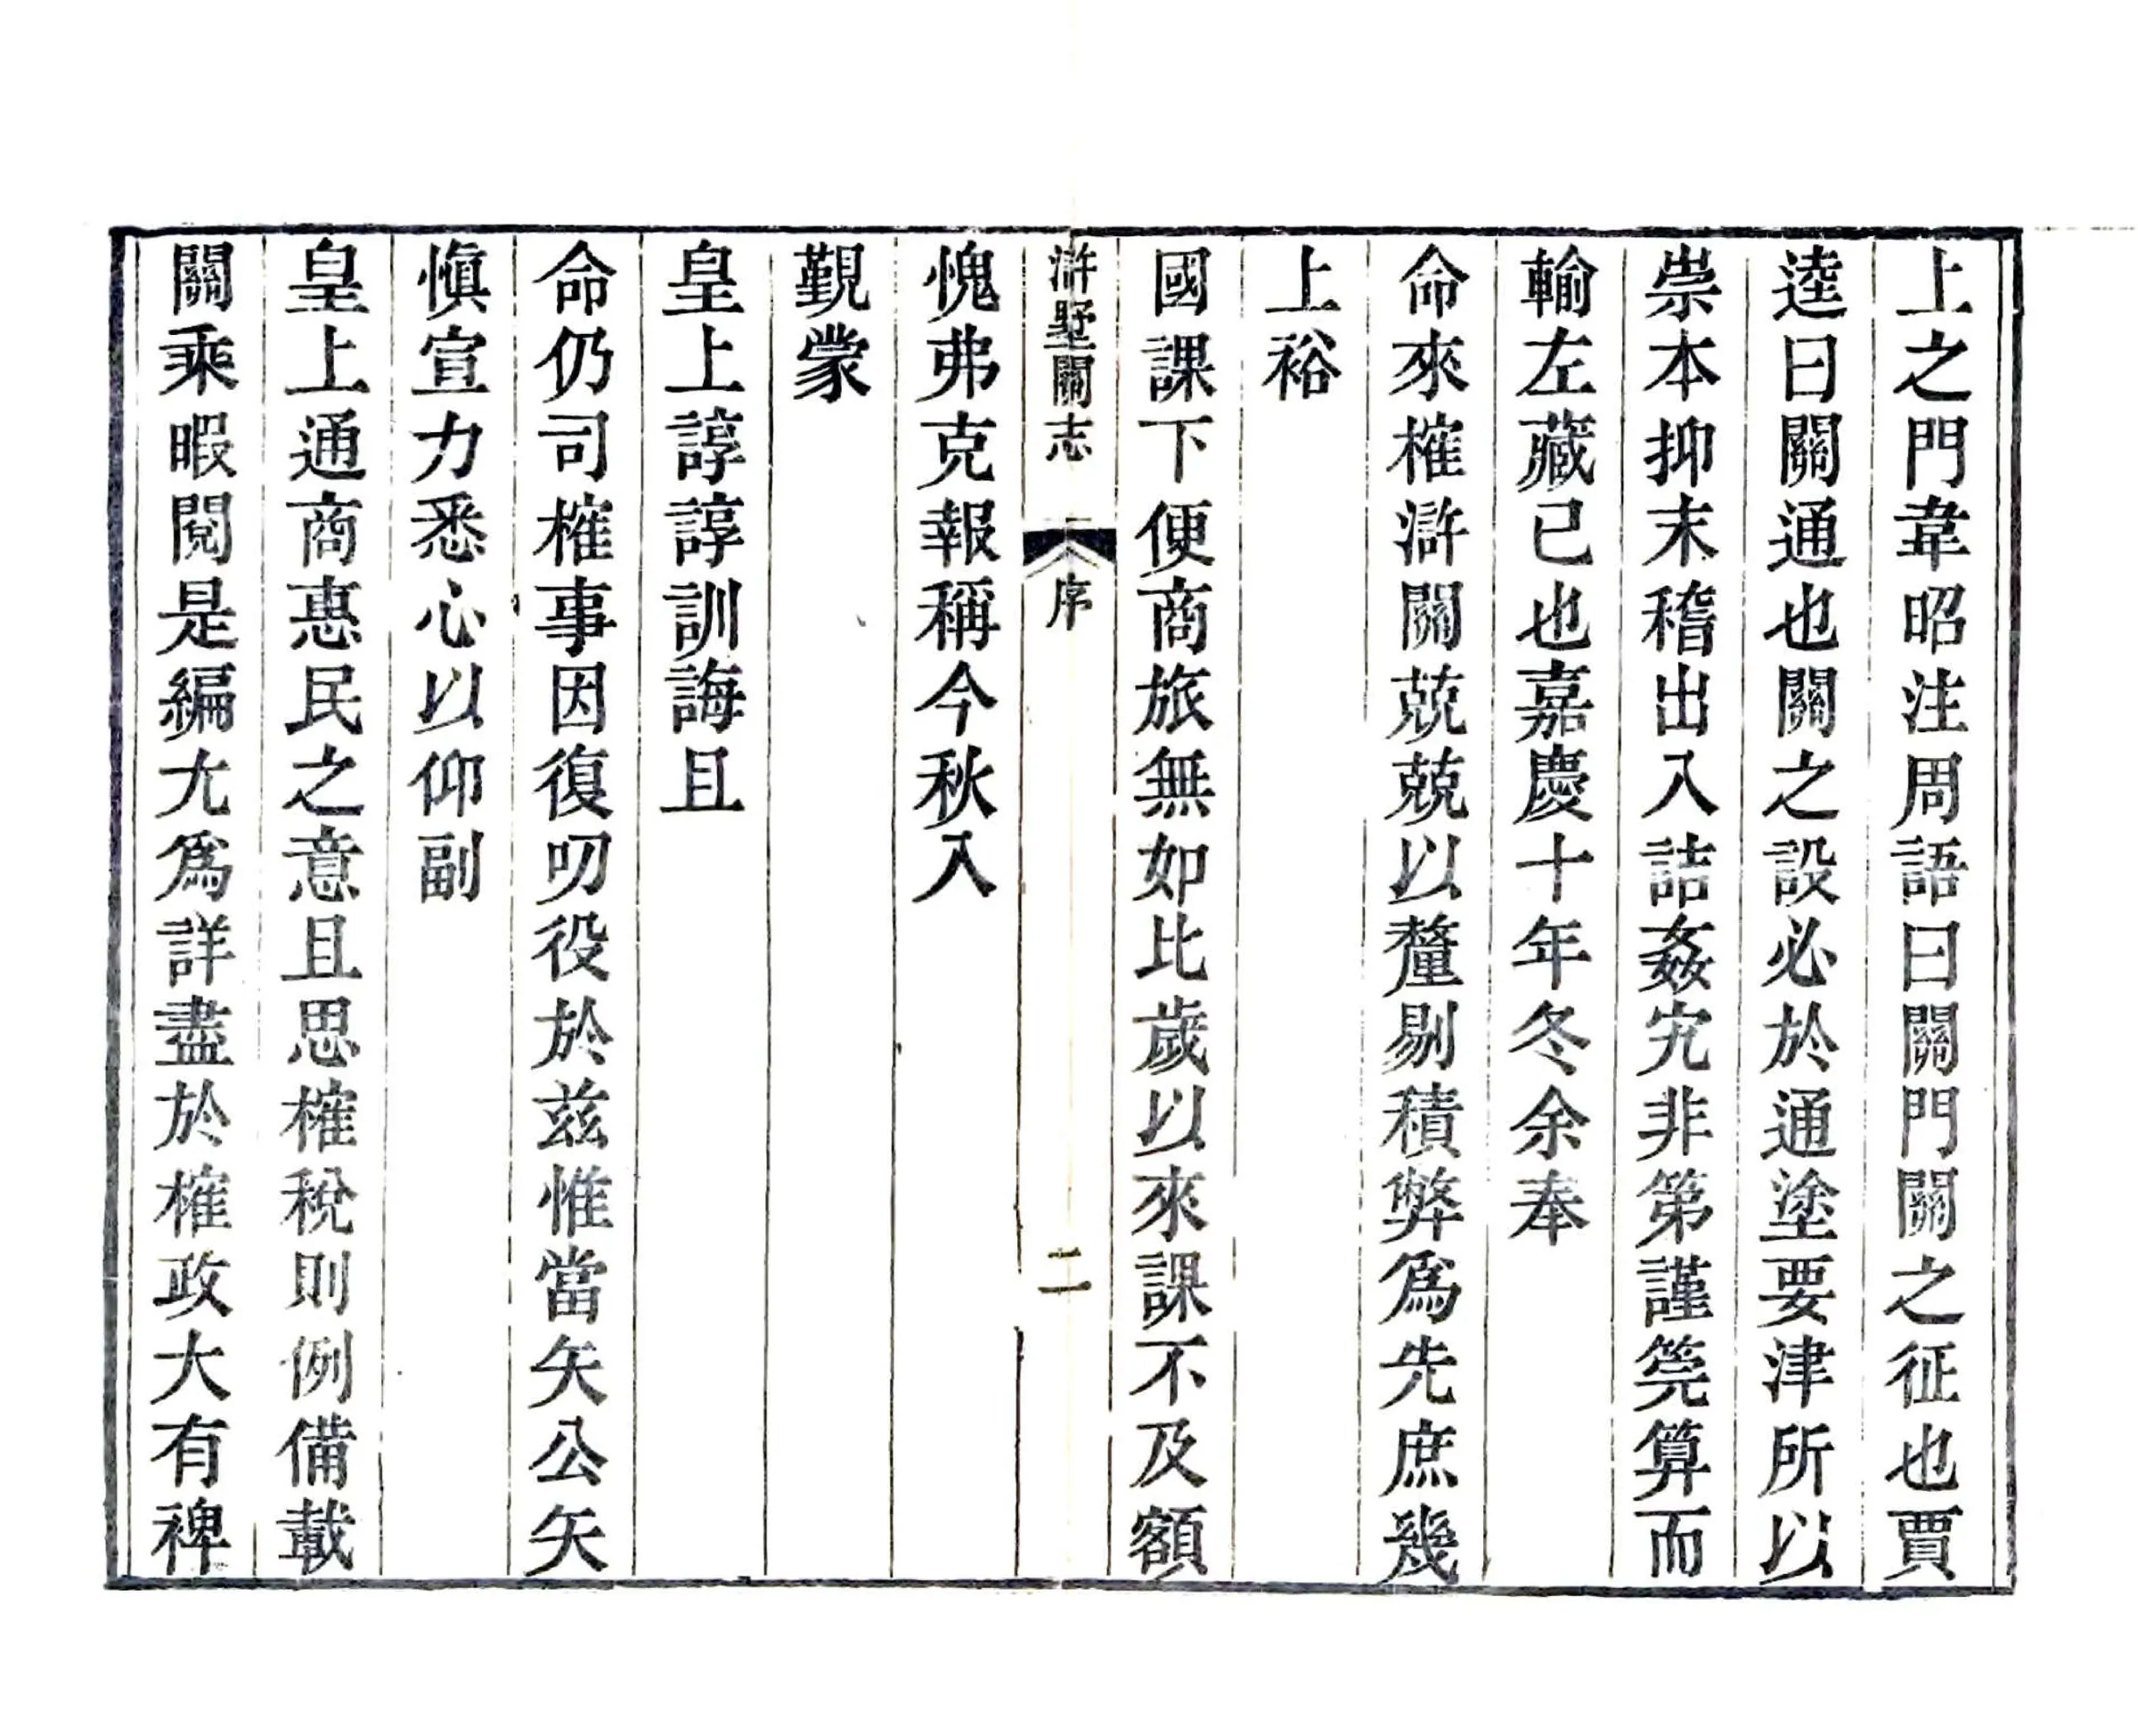 上之門韋昭注周語曰關門關之征也賈
逵曰關通也關之設必於通塗要津所以
崇本抑末稽出入詰姦宄非第謹筦算而
輸左藏已也嘉慶十年冬余奉
命來榷滸關兢兢以釐剔積弊爲先庶幾
上裕
國課下便商旅無如比歲以來課不及額
滸墅關志 序 二
愧弗克報稱今秋入
覲蒙
皇上諄諄訓誨且
命仍司榷事因復叨役於茲惟當矢公矢
愼宣力悉心以仰副
皇上通商惠民之意且思榷稅則例備載
關乘暇閱是編尤爲詳盡於榷政大有裨